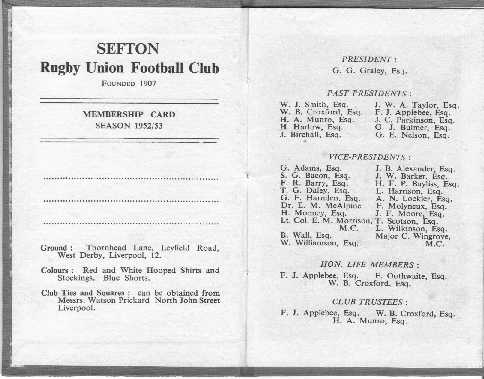 SEFTON
Rugby Union Football Club
FOUNDED 1907
MEMBERSHIP CARD
SEASON 1952/53
Ground : Thornhead Lane, Leyfield Road,
West Derby, Liverpool, 12.
Colours : Red and White Hooped Shirts and
Stockings. Blue Shorts.
Club Ties and Squares : can be obtained from
Messrs. Watson Prickard North John Street
Liverpool.
PRESIDENT :
G. G. Graley, Esq.
PAST PRESIDENTS :
W. J. Smith, Esq. J. W. A. Taylor, Esq.
W. B. Croxford, Esq. F. J. Applebee, Esq.
H. A. Munro, Esq. J. C. Parkinson, Esq.
H. Harlow, Esq. G. J. Bulmer, Esq.
J. Birchall, Esq. G. E. Nelson, Esq.
VICE-PRESIDENTS :
G. Adams, Esq. J. B. Alexander, Esq.
S. G. Bacon, Esq. J. W. Barker, Esq.
F. R. Barry, Esq. H. F. P. Bayliss, Esq.
T. G. Daley, Esq. L. Harrison, Esq.
G. F. Harnden, Esq. A. N. Lockier, Esq.
Dr. L. M. McAlpine F. Molyneux, Esq.
H. Mooney, Esq. J. F. Moore, Esq.
Lt. Col. E. M. Morrison, T. Scotson, Esq.
M.C. L. Wilkinson, Esq.
B. Wall, Esq. Major C. Wingrove,
W. Williamson, Esq. M.C.
HON. LIFE MEMBERS :
F. J. Applebee, Esq. F. Outhwaite, Esq.
W. B. Croxford, Esq.
CLUB TRUSTEES :
F. J. Applebee, Esq. W. B. Croxford, Esq.
H. A. Munro, Esq.